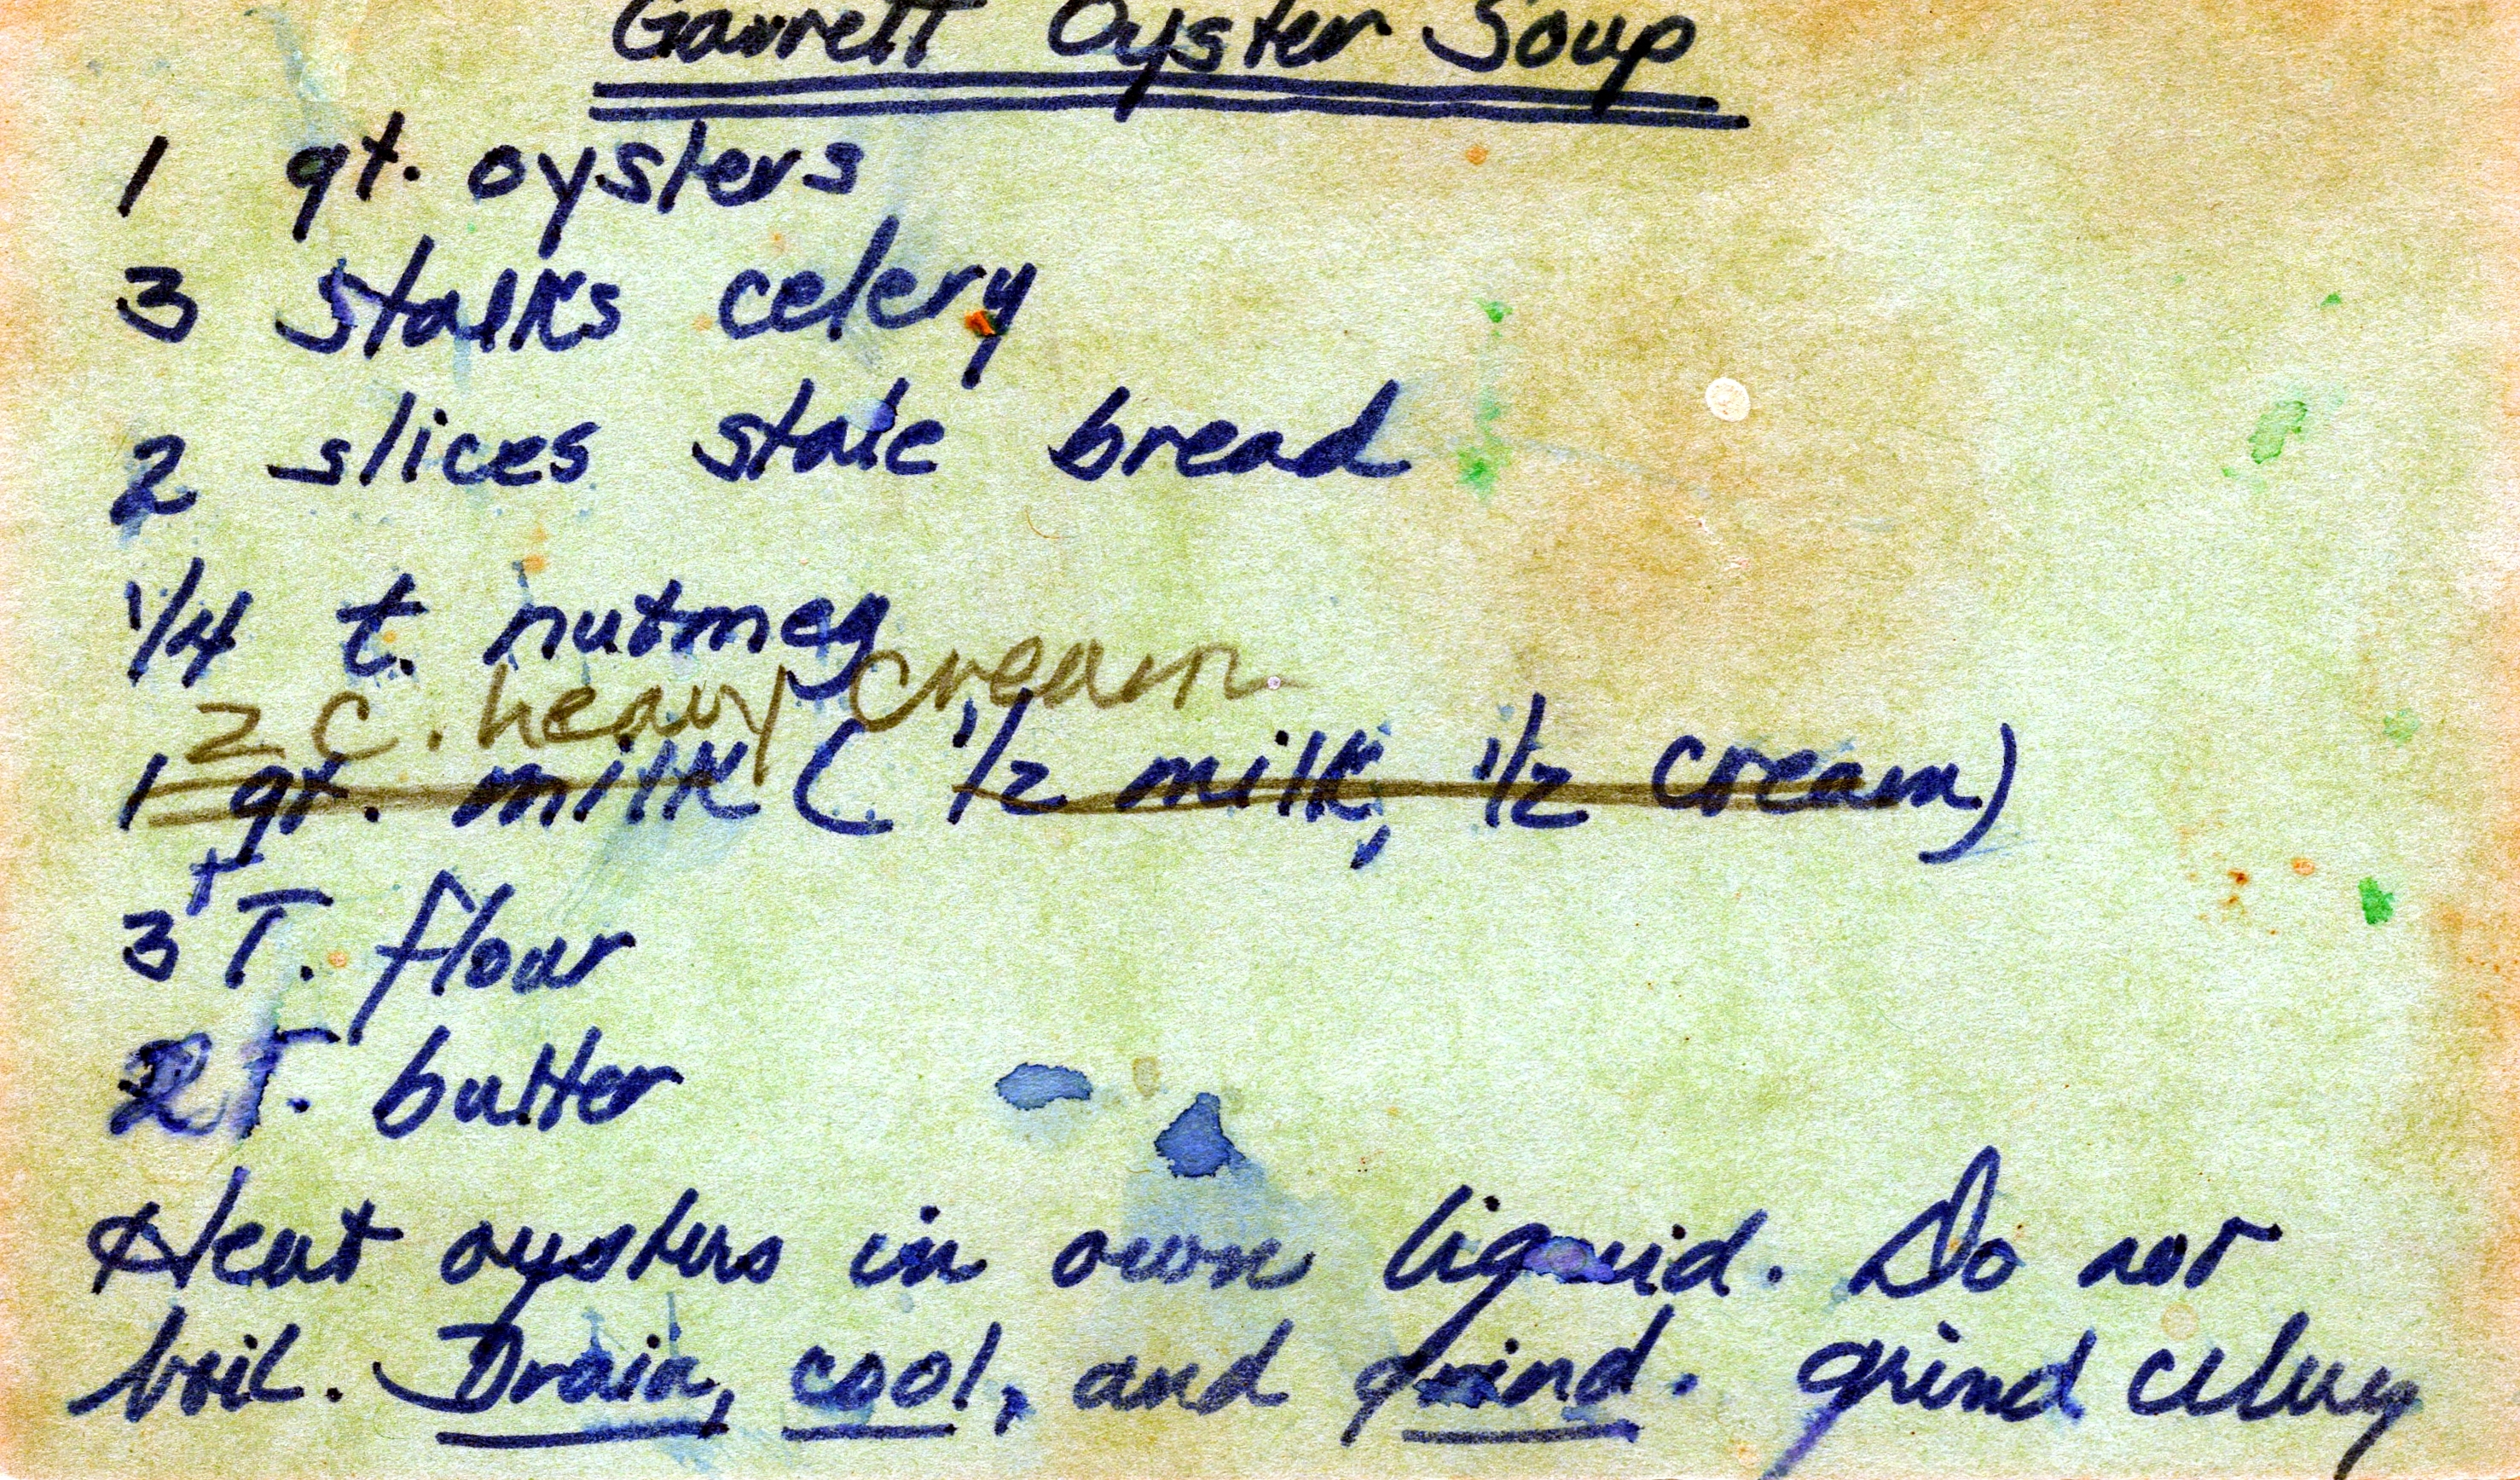 Garrett Oyster Soup
1 qt. oysters
3 stalks celery
2 slices stale bread
1/4 t. nutmeg
2 c. heavy cream
1 qt. milk (1/2 milk, 1/2 cream)
3+ T. flour
2 T. butter
Heat oysters in own liquid. Do not
boil. Drain, cool, and grind. grind celery